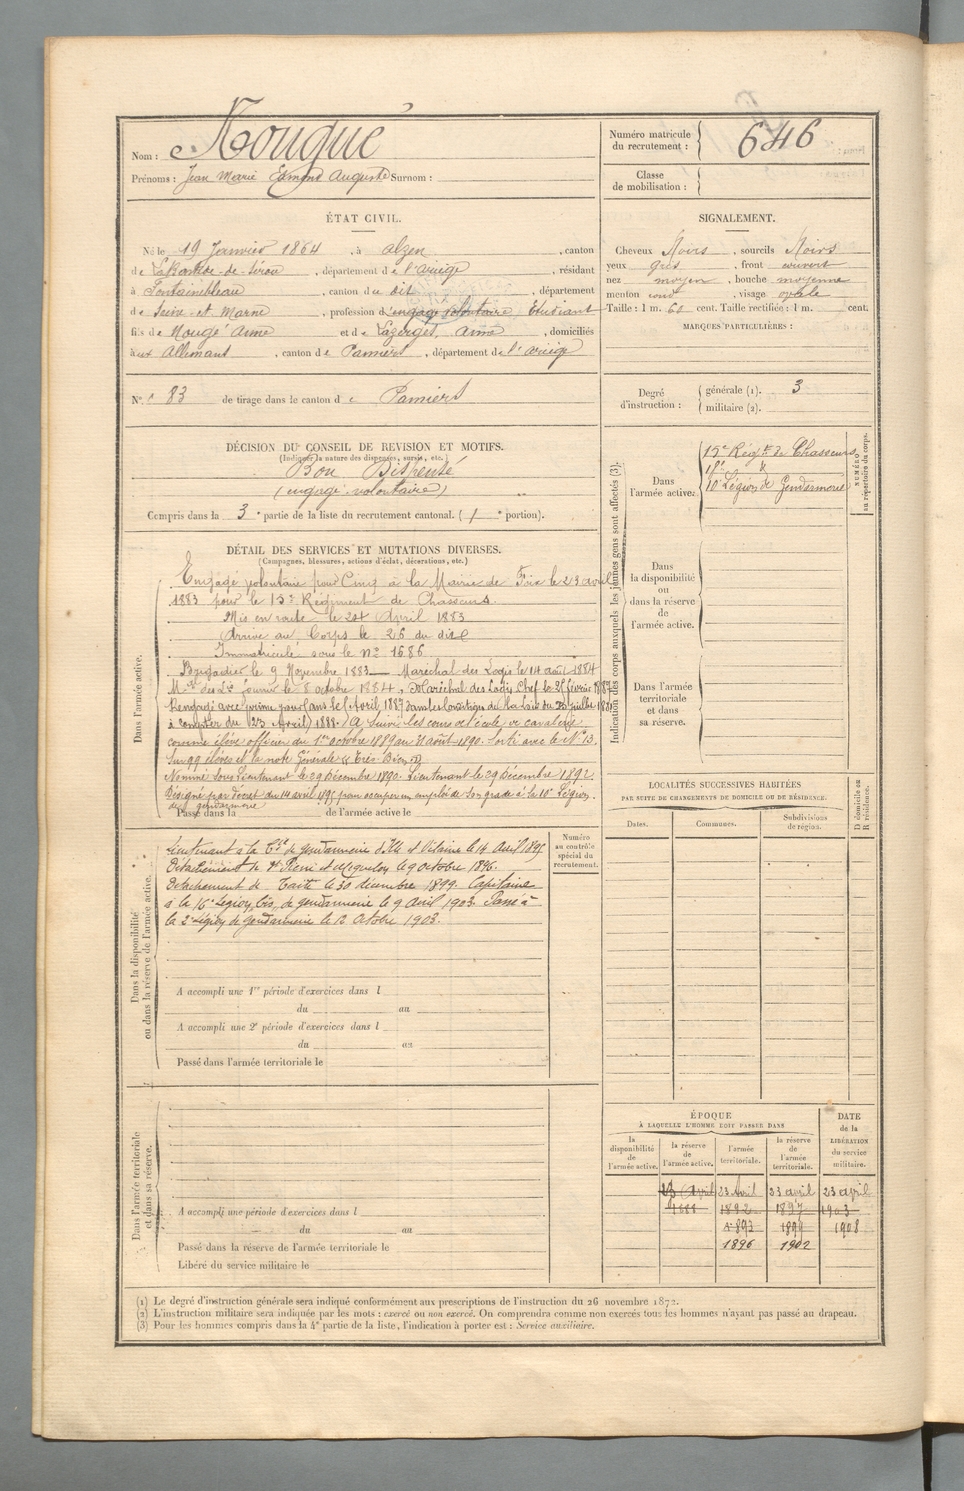 Nom : Nougué
Prénoms : Jean Marie Edmond Auguste Surnom :
Numéro matricule du recrutement : 646
Classe de mobilisation :
ÉTAT CIVIL.
Né le 19 Janvier 1864, à Alzen, canton
de LaBastide-de-Sérou, département de l'ariège, résidant
à Fontainebleau, canton du dit, département
de Seine-et-Marne, profession d'engagé volontaire, Etudiant
fils de Nougé Anne et de Lazerges, Anne, domiciliés
à Allemant, canton de Pamiers, département de l'ariège
SIGNALEMENT.
Cheveux Noirs, sourcils Noirs
yeux gris, front couvert
nez moyen, bouche moyenne
menton rond, visage ovale
Taille : 1 m. 60 cent. Taille rectifiée : 1 m. cent.
MARQUES PARTICULIÈRES :
N° 83 de tirage dans le canton de Pamiers
Degré d'instruction : générale (1). 3
militaire (2).
DÉCISION DU CONSEIL DE REVISION ET MOTIFS.
(Indiquer la nature des dispenses, sursis, etc.)
Bon Dispensé
(engagé volontaire)
Compris dans la 3e partie de la liste du recrutement cantonal. (1e portion).
Indication des corps auxquels les jeunes gens sont affectés (3).
NUMÉRO au répertoire du corps.
Dans l'armée active.
15e Régt de Chasseurs
10e Légion de Gendarmerie
Dans la disponibilité ou dans la réserve de l'armée active.
Dans l'armée territoriale et dans sa réserve.
DÉTAIL DES SERVICES ET MUTATIONS DIVERSES.
(Campagnes, blessures, actions d'éclat, décorations, etc.)
Dans l'armée active.
Engagé volontaire pour Cinq à la Mairie de Foix le 23 avril
1883 pour le 15e Régiment de Chasseurs.
Mis en route le 24 April 1883
Arrivé au Corps le 26 du dit
Immatriculé sous le no 1686
Brigadier le 9 Novembre 1883 Maréchal des Logis le 14 août 1884
fourrier le 8 octobre 1884, Maréchal des Logis Chef le février 1887
Rengagé avec prime pour ans le Avril 1887
à compter du 23 Avril 1888. A suivi les cours de l'école de cavalerie
comme élève officier du 1er octobre 1889 au 31 août 1890. Sorti avec le No 13.
Sur 99 élèves et la note générale "Très Bien".
Nommé Sous Lieutenant le 29 Décembre 1890. Lieutenant le 29 Décembre 1892.
Désigné par décret du 14 avril 1895 pour occuper un emploi de son grade à la 10e Légion
de gendarmerie
Passé dans la de l'armée active le
Dans la disponibilité ou dans la réserve de l'armée active.
Numéro au contrôle spécial du recrutement.
Lieutenant à la Cie de gendarmerie d'Ille et Vilaine le 14 Avril 1895
Détachement de St Pierre et Miquelon le 9 octobre 1896.
Détachement de Taïti le 30 décembre 1899. Capitaine
à la 16e Légion bis de gendarmerie le 9 Avril 1903. Passé à
la 2e Légion de gendarmerie le 12 Octobre 1903.
A accompli une 1re période d'exercices dans l
du au
A accompli une 2e période d'exercices dans l
du au
Passé dans l'armée territoriale le
LOCALITÉS SUCCESSIVES HABITÉES
PAR SUITE DE CHANGEMENTS DE DOMICILE OU DE RÉSIDENCE.
D domicile ou R résidence.
Dates. Communes. Subdivisions de région.
Dans l'armée territoriale et dans sa réserve.
A accompli une période d'exercices dans l
du au
Passé dans la réserve de l'armée territoriale le
Libéré du service militaire le
ÉPOQUE
À LAQUELLE L'HOMME DOIT PASSER DANS
DATE de la LIBÉRATION du service militaire.
la disponibilité de l'armée active. la réserve de l'armée active. l'armée territoriale. la réserve de l'armée territoriale.
23 Avril 23 Avril 23 avril 23 april
1888 1892 1897 1903
1893 1899 1908
1896 1902
(1) Le degré d'instruction générale sera indiqué conformément aux prescriptions de l'instruction du 26 novembre 1872.
(2) L'instruction militaire sera indiquée par les mots : exercé ou non exercé. On comprendra comme non exercés tous les hommes n'ayant pas passé au drapeau.
(3) Pour les hommes compris dans la 4e partie de la liste, l'indication à porter est : Service auxiliaire.